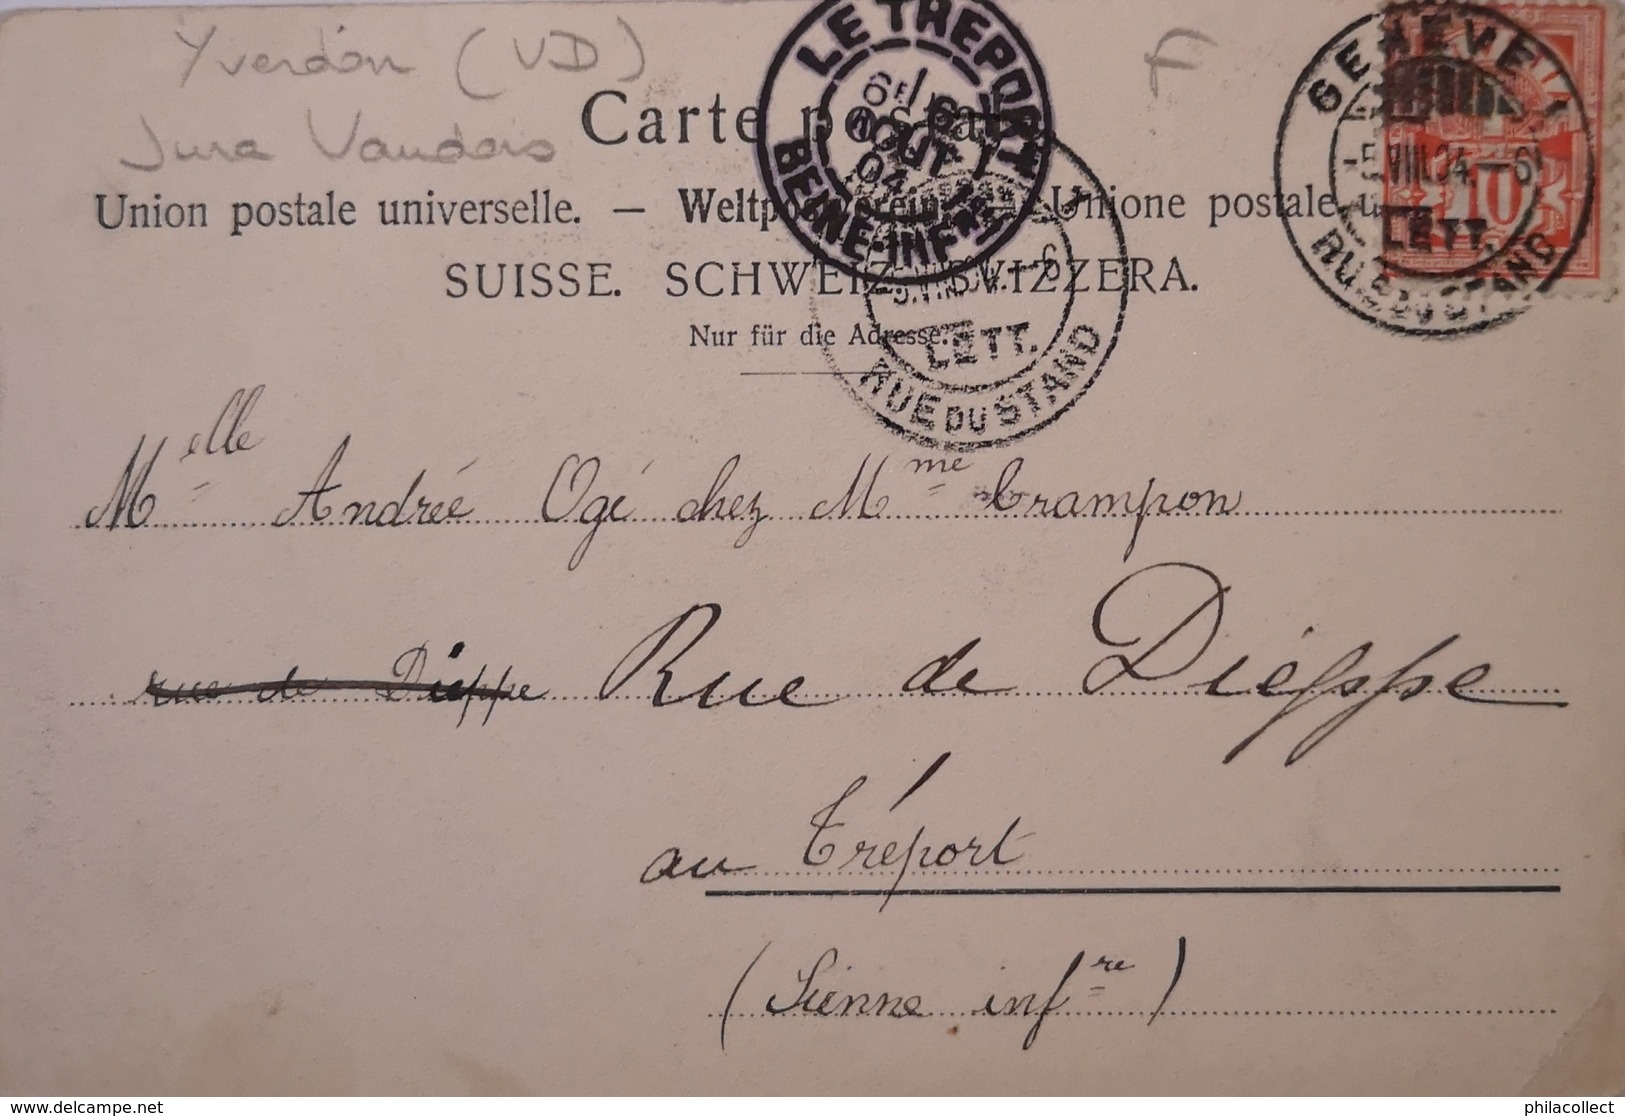 Yverdon (VD) F
Jura Vaudois
Carte postale
Union postale universelle. — Weltpostverein. — Unione postale u
SUISSE. SCHWEIZ. SVIZZERA.
Nur für die Adresse.
LE TREPORT
6E
6
AOUT
04
SEINE-INFRE
GENEVE 1
-5.VIII.04.-6
LETT.
RUE DU STAND
10
-5.VIII.04.-6
LETT.
RUE DU STAND
Melle Andrée Ogé chez Mme Crampon
rue de Dieppe Rue de Dieppe
au Tréport
(Sienne infre)
delcampe.net
philacollect